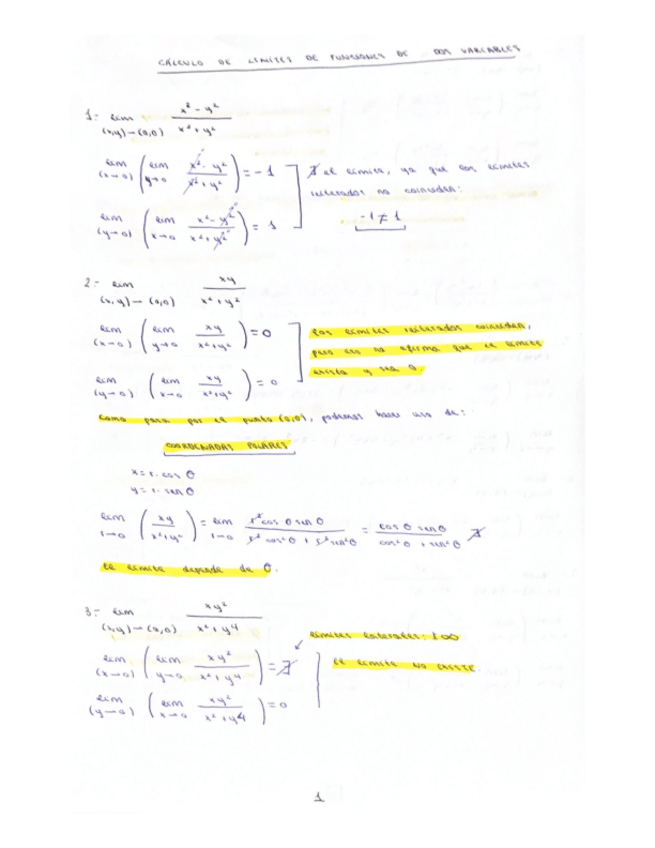 CÁLCULO DE LÍMITES DE FUNCIONES DE DOS VARIABLES
1- lim (x,y)→(0,0) x² - y² / x² + y²
lim (x→0) ( lim y→0 x² - y² / x² + y² ) = -1
∄ el límite, ya que los límites
lim (y→0) ( lim x→0 x² - y² / x² + y² ) = 1
reiterados no coinciden:
-1 ≠ 1
2- lim (x,y)→(0,0) xy / x² + y²
lim (x→0) ( lim y→0 xy / x² + y² ) = 0
lim (y→0) ( lim x→0 xy / x² + y² ) = 0
Los límites reiterados coinciden,
pero eso no afirma que el límite
exista y sea 0.
Como pasa por el punto (0,0), podemos hacer uso de:
COORDENADAS POLARES
x = r · cos θ
y = r · sen θ
lim r→0 ( xy / x² + y² ) = lim r→0 r² cos θ sen θ / r² cos² θ + r² sen² θ = cos θ sen θ / cos² θ + sen² θ ∄
El límite depende de θ.
3- lim (x,y)→(0,0) xy² / x² + y⁴
límites laterales: ±∞
lim (x→0) ( lim y→0 xy² / x² + y⁴ ) = ∄
El límite no existe
lim (y→0) ( lim x→0 xy² / x² + y⁴ ) = 0
1